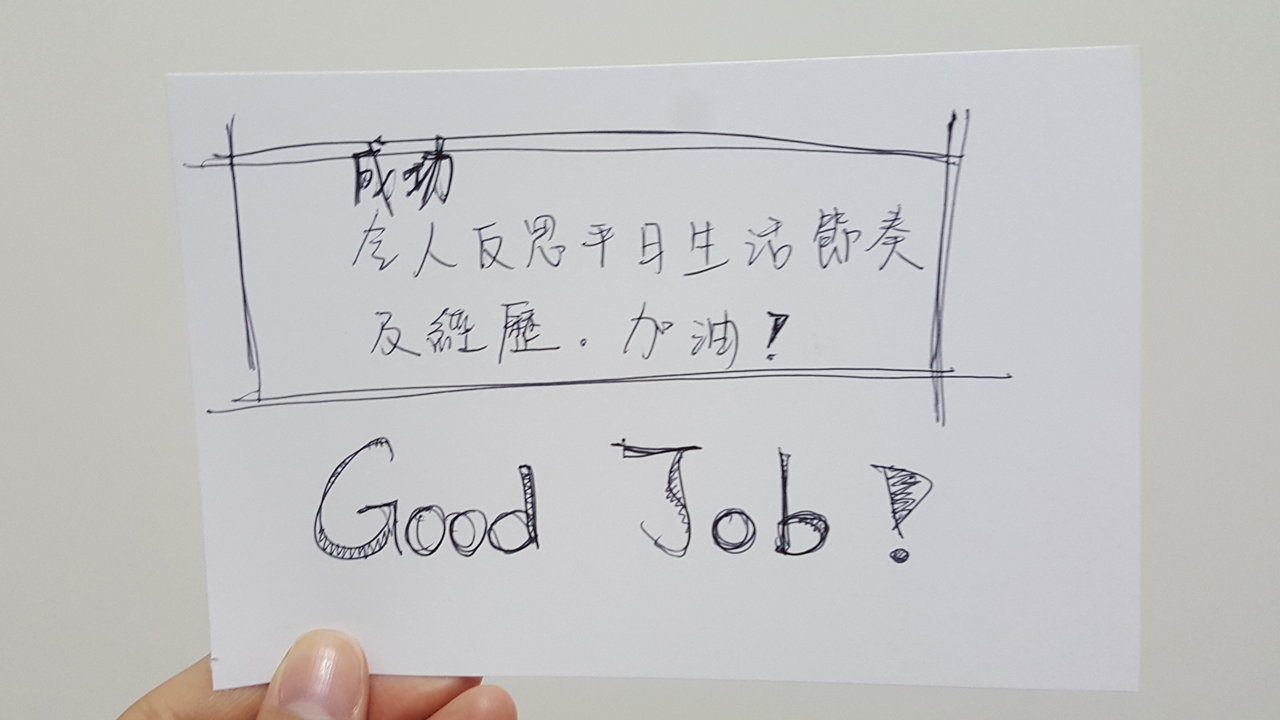 成功
令人反思平日生活節奏
及經歷。加油!
Good Job!